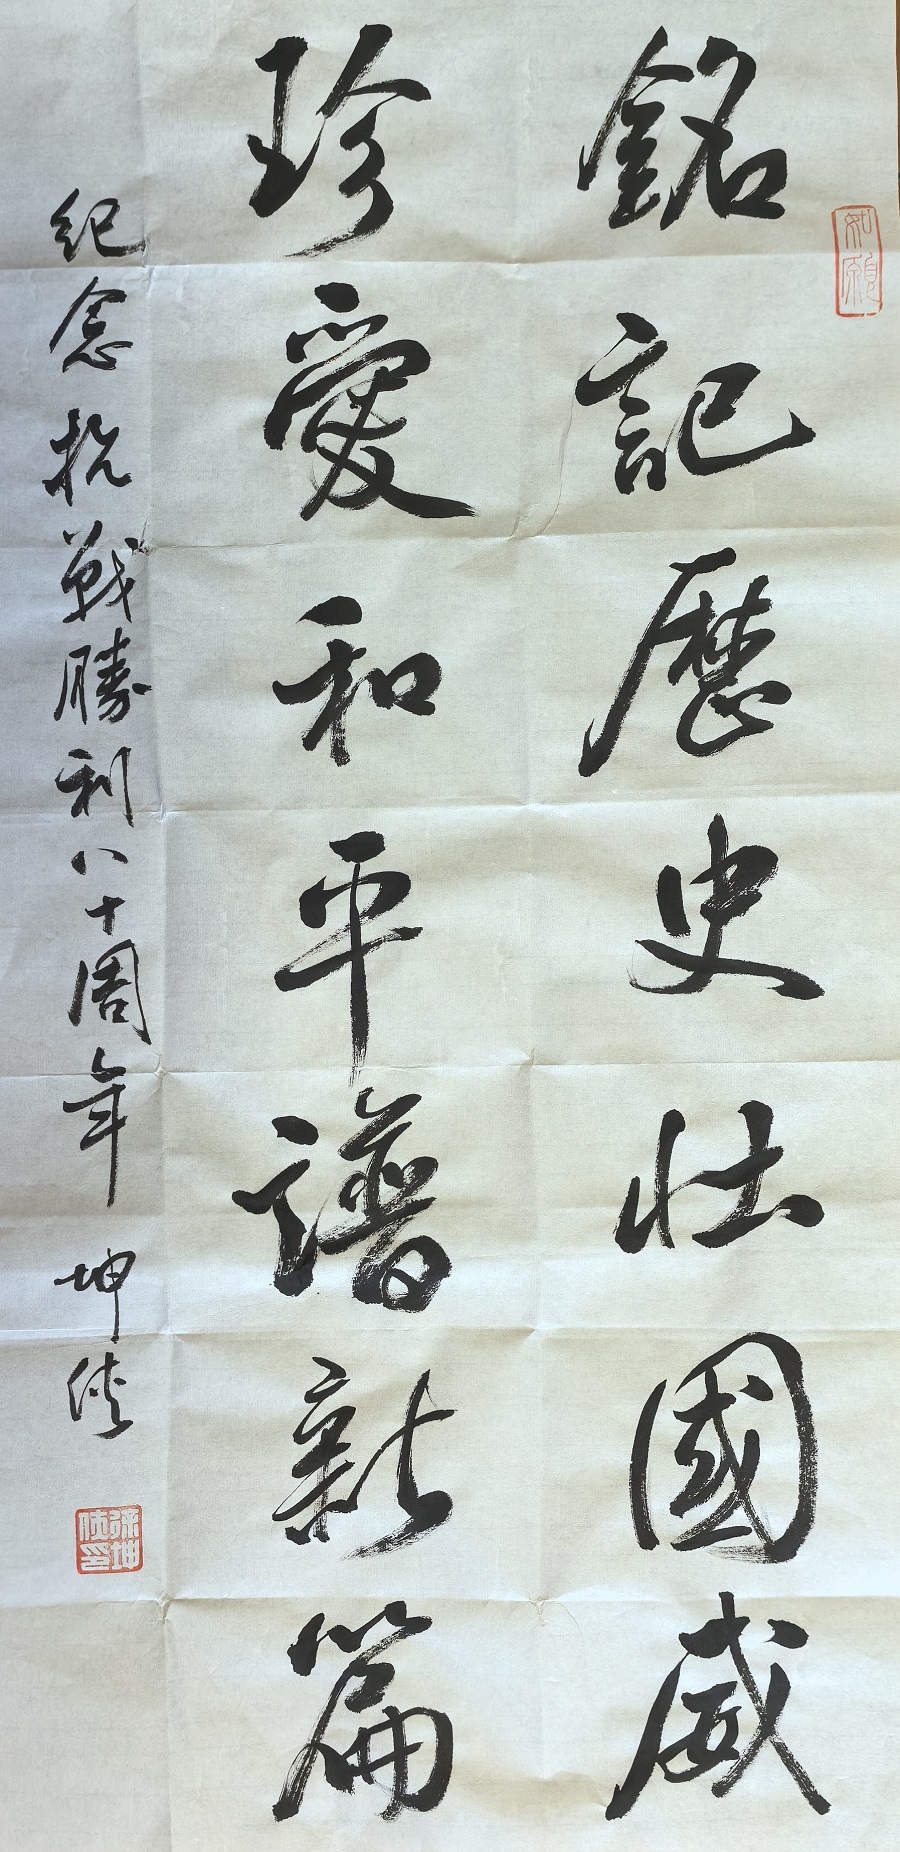 銘記歷史壯國威
珍愛和平譜新篇
紀念抗戰勝利八十周年 坤俠
如願